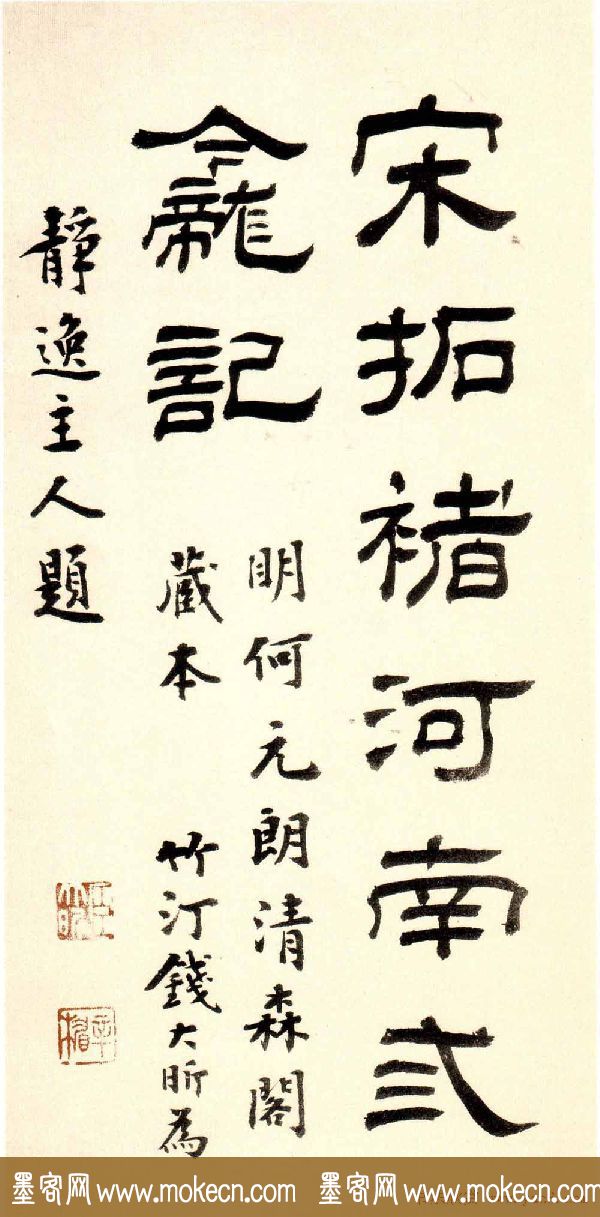 宋拓褚河南弎
龕記
明何元朗清森閣
藏本 竹汀錢大昕為
靜逸主人題
臣大昕
辛楣
墨客网 www.mokecn.com 墨客网 www.mokecn.com